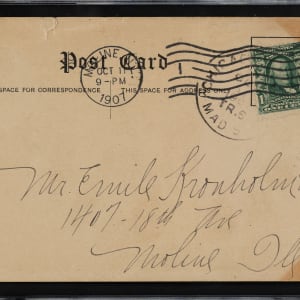 Post Card
SPACE FOR CORRESPONDENCE THIS SPACE FOR ADDRESS
MOLINE
OCT 11
9-PM
1907
CHICA
TR.6
MAD
1
Mr. Emile Kronholm
1407-18th Ave.
Moline Ill